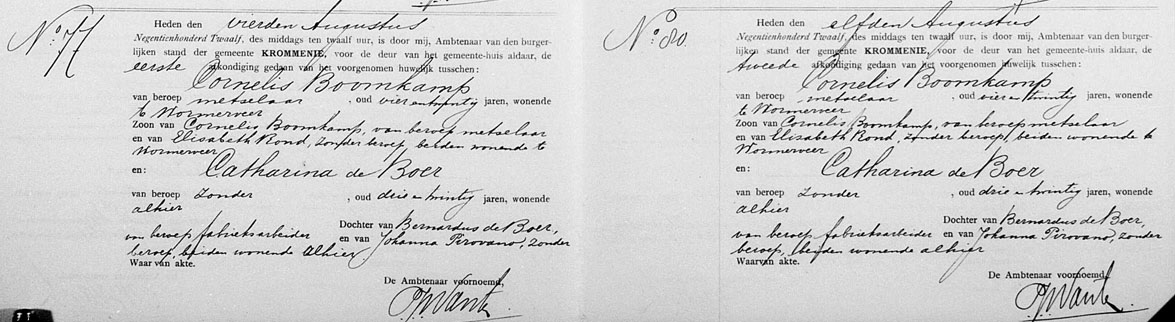 No 77
Heden den vierden Augustus
Negentienhonderd Twaalf, des middags ten twaalf uur, is door mij, Ambtenaar van den burger-
lijken stand der gemeente KROMMENIE, voor de deur van het gemeente-huis aldaar, de
eerste afkondiging gedaan van het voorgenomen huwelijk tusschen:
Cornelis Boomkamp
van beroep metselaar, oud vier en twintig jaren, wonende
te Wormerveer
Zoon van Cornelis Boomkamp, van beroep metselaar
en van Elisabeth Rond, zonder beroep, beiden wonende te
Wormerveer
en: Catharina de Boer
van beroep zonder, oud drie en twintig jaren, wonende
alhier
Dochter van Bernardus de Boer,
van beroep fabrieksarbeider en van Johanna Pirovano, zonder
beroep, beiden wonende alhier
Waarvan akte.
De Ambtenaar voornoemd,
No 80
Heden den elfden Augustus
Negentienhonderd Twaalf, des middags ten twaalf uur, is door mij, Ambtenaar van den burger-
lijken stand der gemeente KROMMENIE, voor de deur van het gemeente-huis aldaar, de
tweede afkondiging gedaan van het voorgenomen huwelijk tusschen:
Cornelis Boomkamp
van beroep metselaar, oud vier en twintig jaren, wonende
te Wormerveer
Zoon van Cornelis Boomkamp, van beroep metselaar
en van Elisabeth Rond, zonder beroep, beiden wonende te
Wormerveer
en: Catharina de Boer
van beroep zonder, oud drie en twintig jaren, wonende
alhier
Dochter van Bernardus de Boer,
van beroep fabrieksarbeider en van Johanna Pirovano, zonder
beroep, beiden wonende alhier
Waarvan akte.
De Ambtenaar voornoemd,